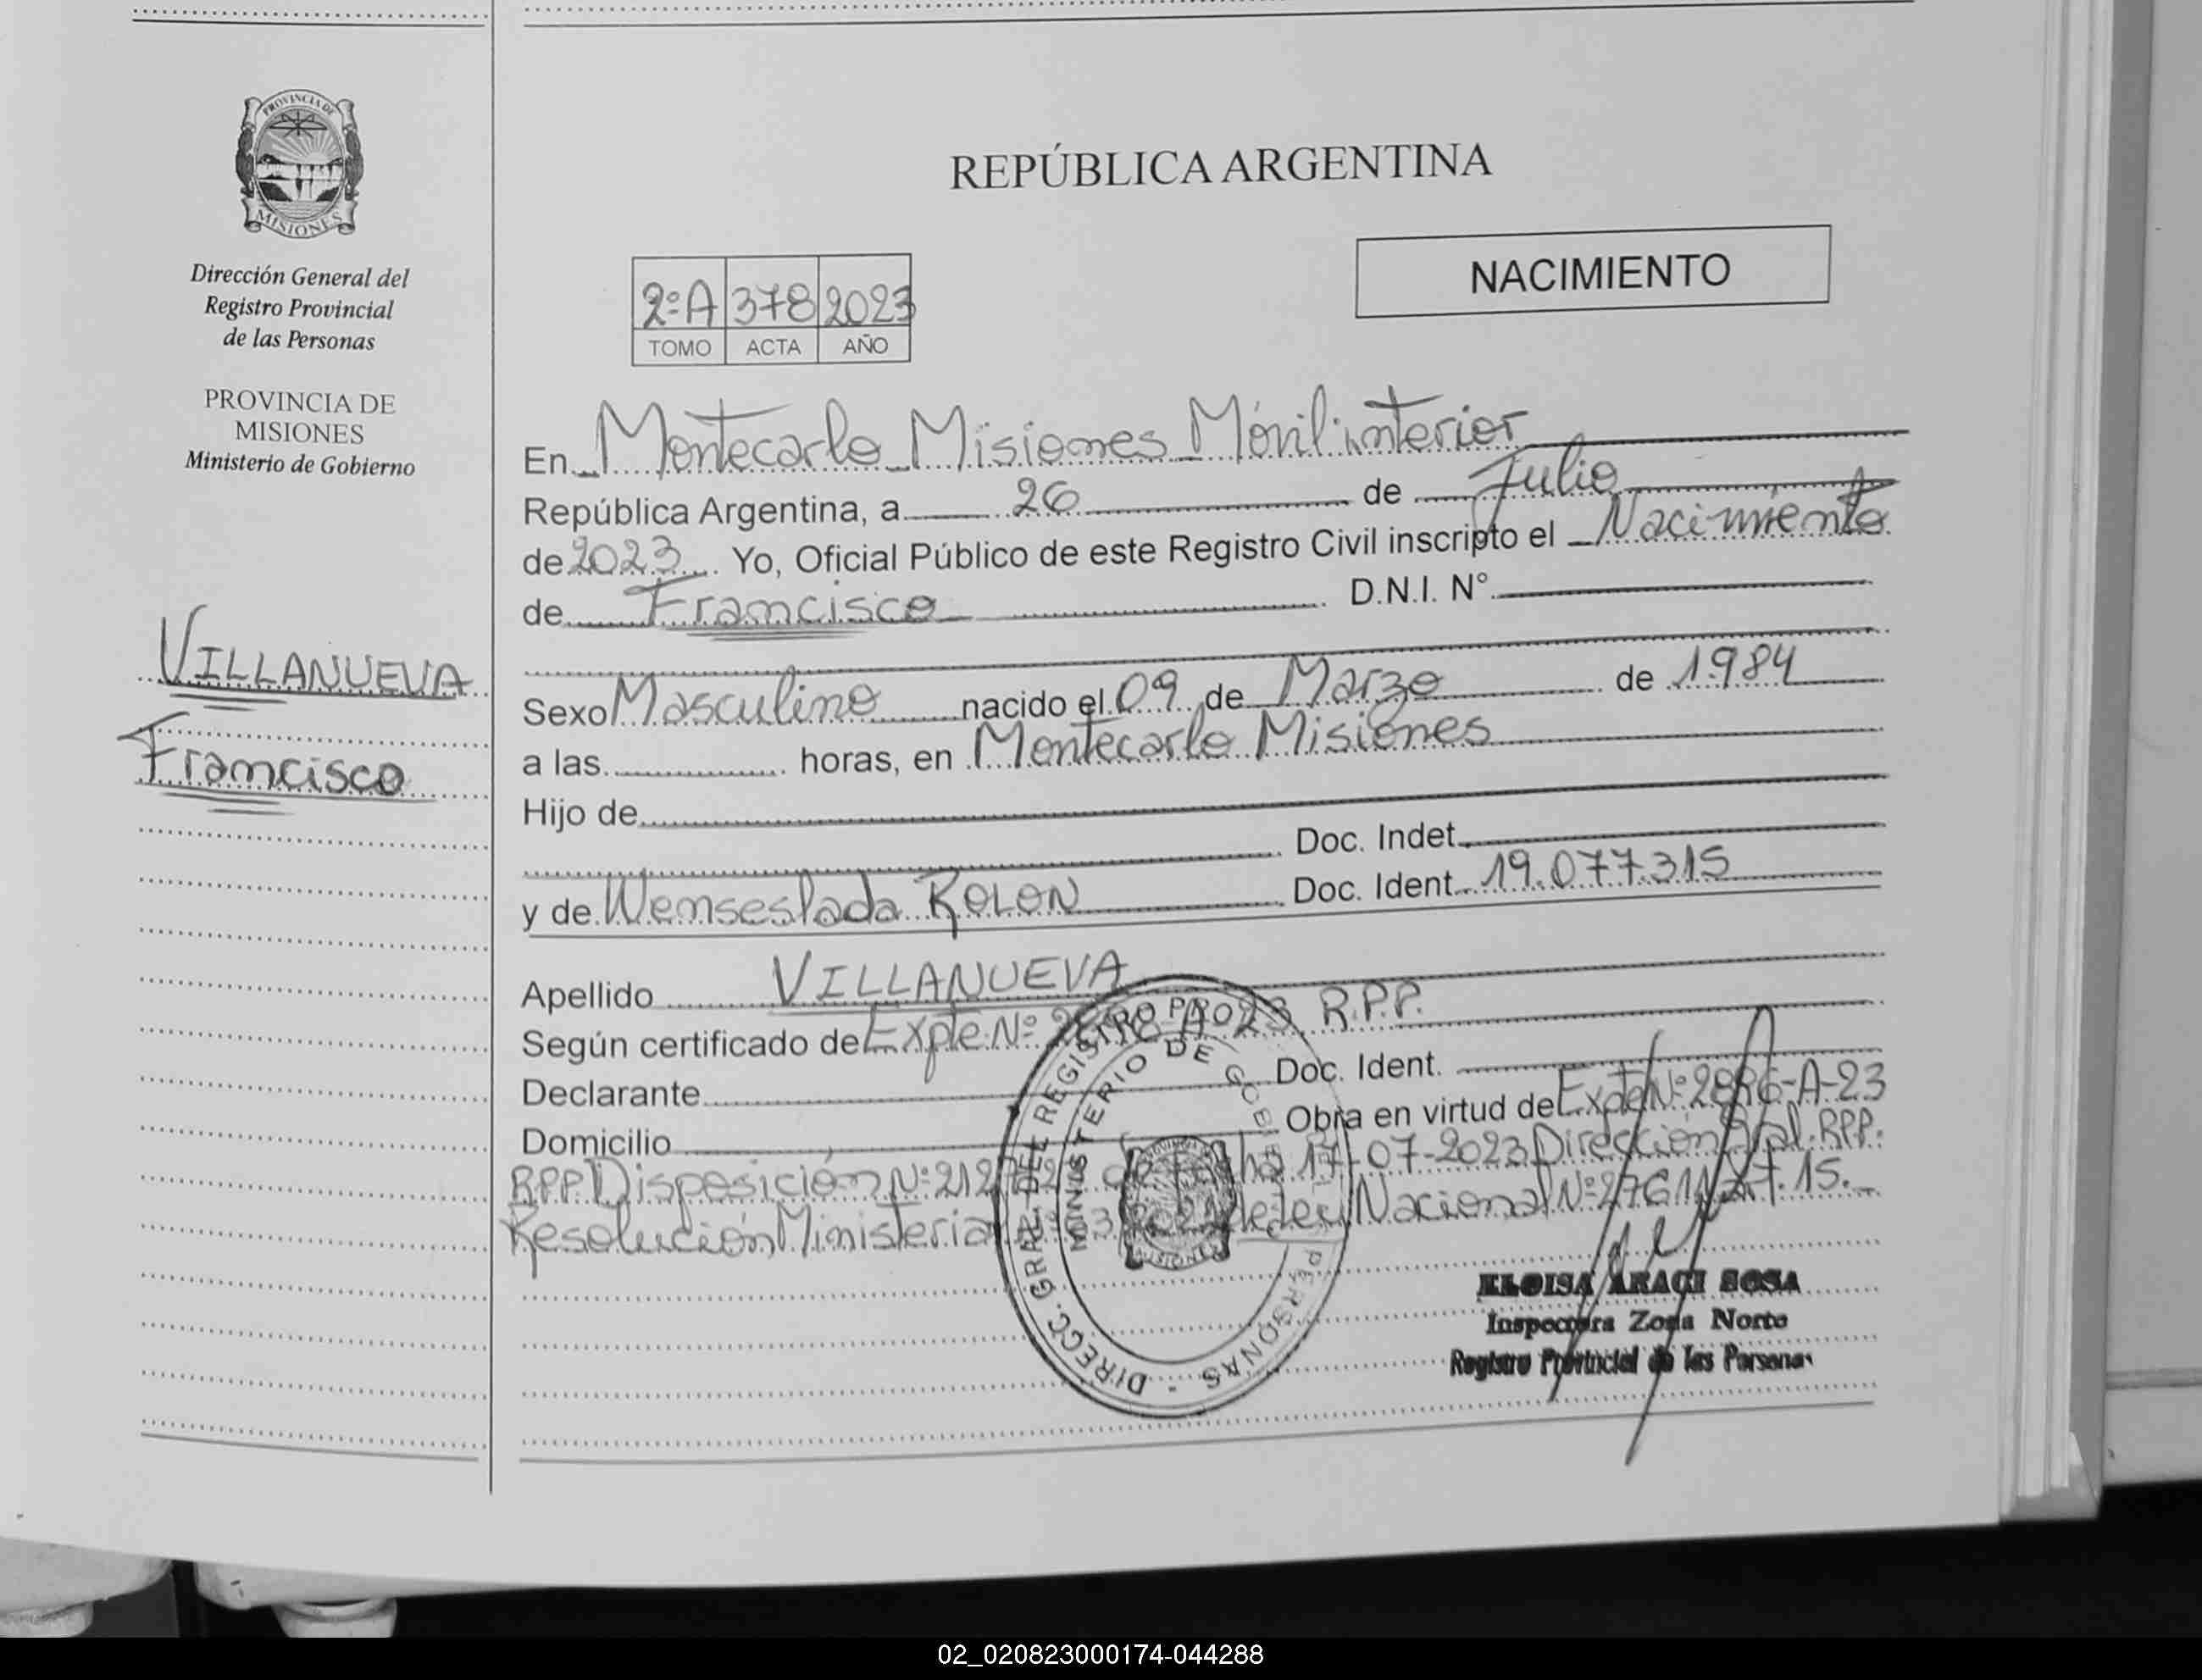 PROVINCIA DE
MISIONES
Dirección General del
Registro Provincial
de las Personas
PROVINCIA DE
MISIONES
Ministerio de Gobierno
VILLANUEVA
Francisco
REPÚBLICA ARGENTINA
NACIMIENTO
2º A 378 2023
TOMO ACTA AÑO
En Montecarlo Misiones Móvil interior
República Argentina, a 26 de Julio
de 2023 Yo, Oficial Público de este Registro Civil inscripto el Nacimiento
de Francisco D.N.I. N°
Sexo Masculino nacido el 09 de Marzo de 1984
a las horas, en Montecarlo Misiones
Hijo de
Doc. Indet.
y de Wenseslada ROLON Doc. Ident. 19.077.315
Apellido VILLANUEVA
Según certificado de Expte Nº R.P.P.
Declarante Doc. Ident.
Domicilio Obra en virtud de Expte Nº -A-23
RPP Disposición Nº de fecha 17-07-2023 Dirección Gral. RPP.
Resolución Ministerial de ley Nacional Nº Art. 15.
DIRECC. GRAL. DEL REGISTRO PERSONAS -
MINISTERIO DE
MISIONES
ELOISA ARACI SOSA
Inspectora Zona Norte
Registro Provincial de las Personas
02_020823000174-044288